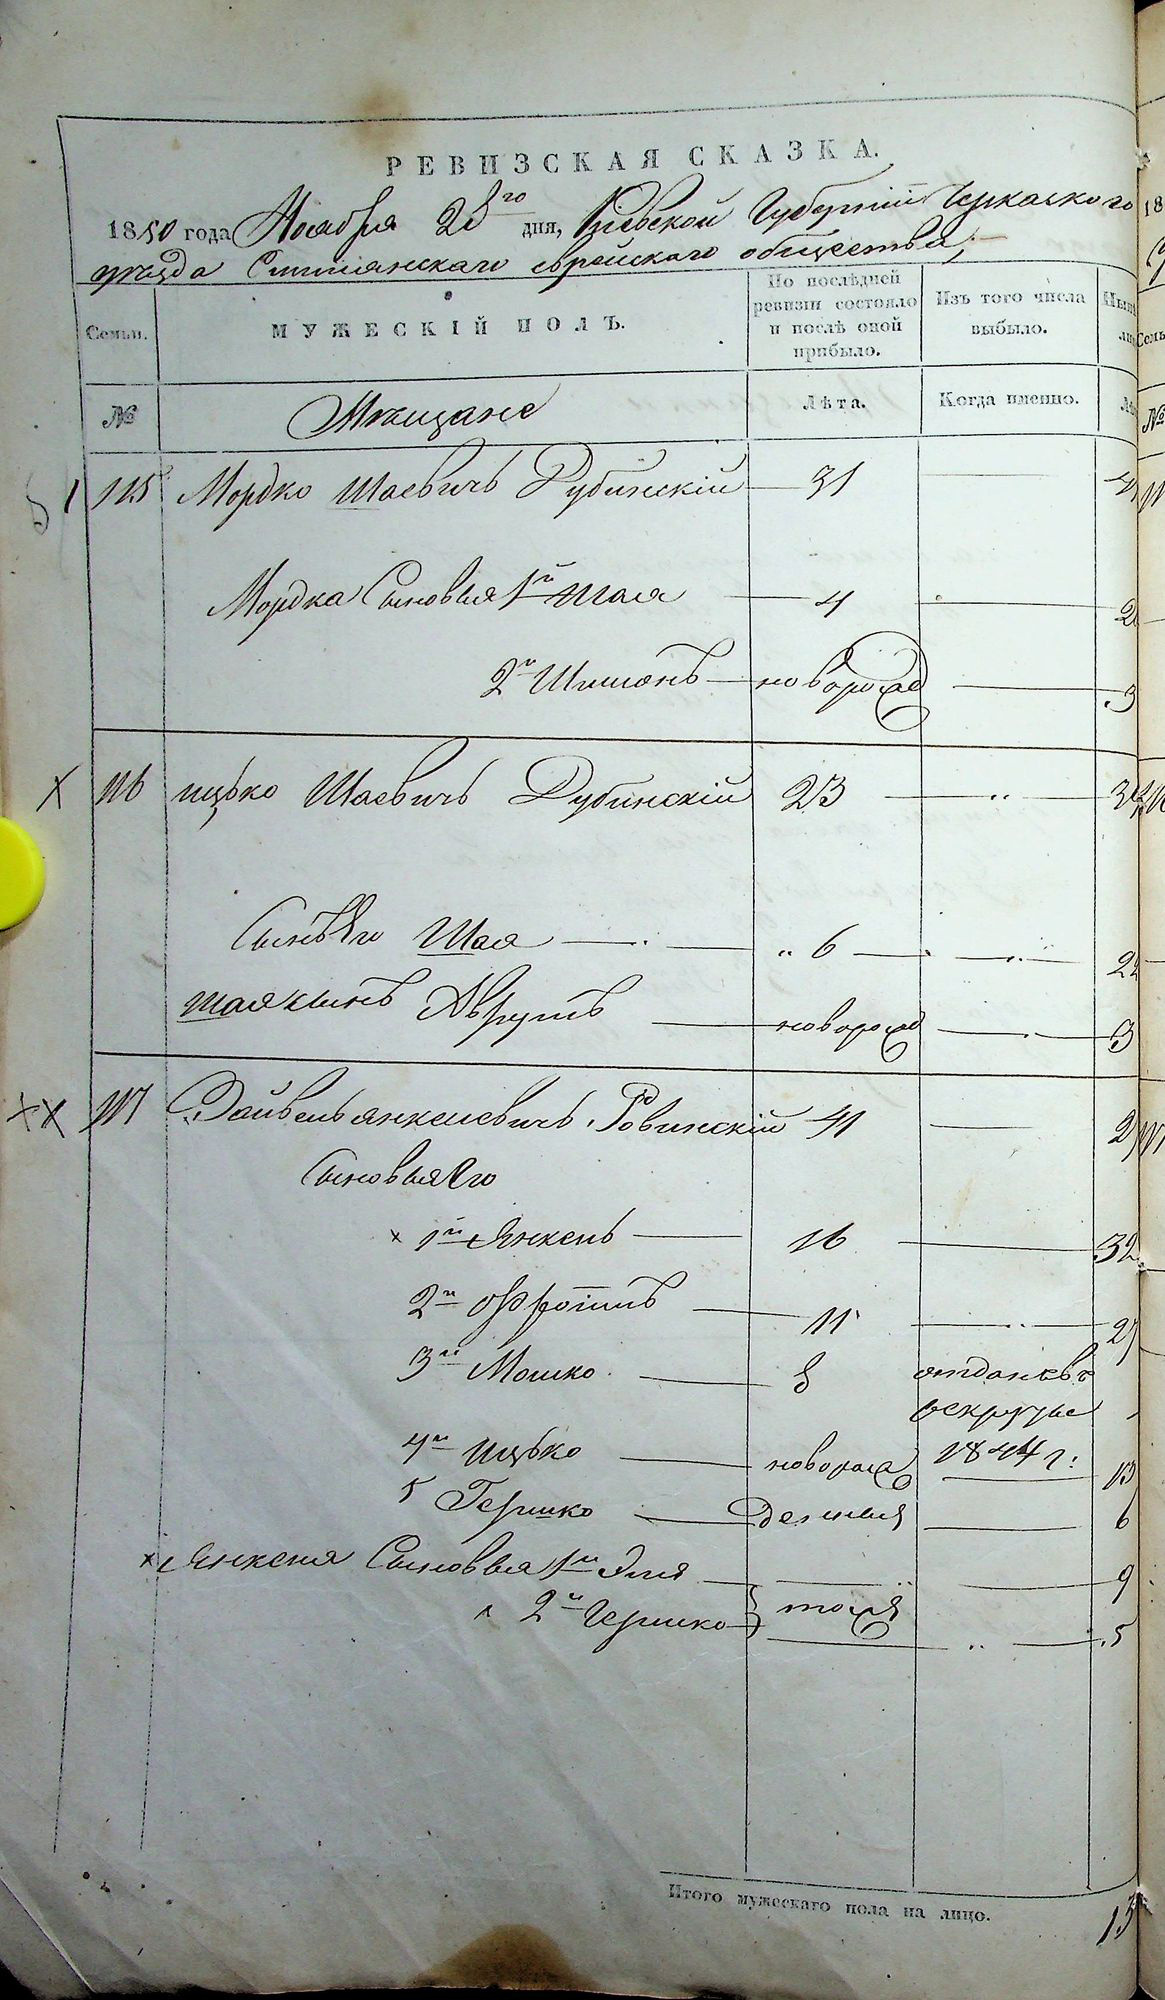 РЕВИЗСКАЯ СКАЗКА.
1850 года Ноября 28го дня, Кіевской Губерніи Черкаскаго
уѣзда Смѣлянскаго еврейскаго общества;
Семьи. МУЖЕСКІЙ ПОЛЪ. По послѣдней ревизіи состояло и послѣ оной прибыло. Изъ того числа выбыло.
№ Мѣщане Лѣта. Когда именно.
115 Мордко Шаевичъ Дубинскій 31
Мордка Сыновья 1й Шая 4
2й Шимонъ новорожд 3
116 ицько Шаевичъ Дубинскій 23
Сынъ Его Шая 6
Шая сынъ Аврумъ новорожд 3
117 Файвель янкелевичъ Ровинскій 41
Сыновья Его
1й Янкель 16 32
2й Фроимъ 11 27
3й Мошко 8 отданъ въ
рекруты
4й Ицько новорожд 1844 г: 13
5 Гершко 6
Янкеля Сыновья 1й Эля 9
2й Гершко тожъ 5
Итого мужескаго пола на лицо. 13